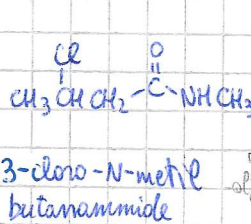 Cl O
CH3 CH CH2 - C - NH CH3
3-cloro-N-metil
butanammide